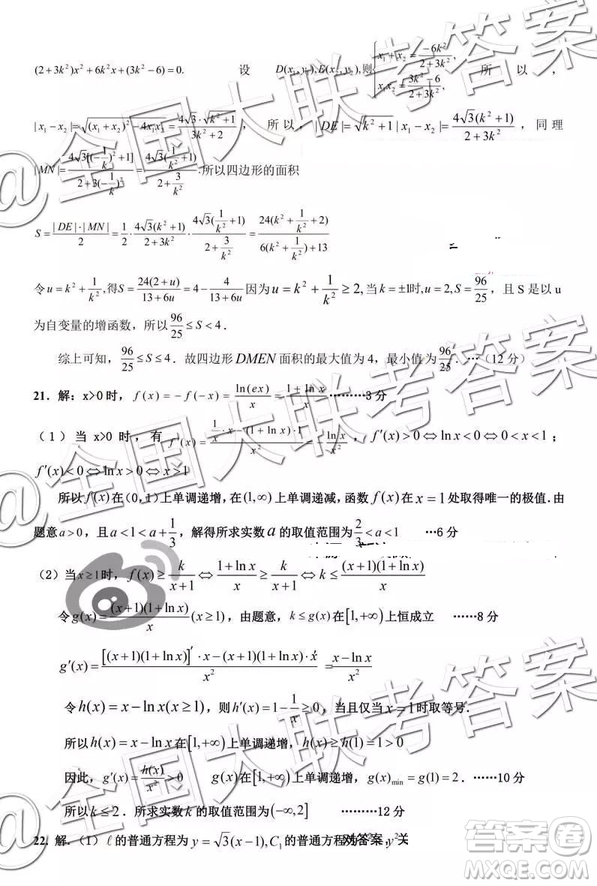 (2+3k²)x²+6k²x+(3k²-6)=0. 设 D(x₁,y₁),E(x₂,y₂),则{x₁+x₂=-6k²/(2+3k²), x₁x₂=(3k²-6)/(2+3k²), 所以，
|x₁-x₂|=√((x₁+x₂)²-4x₁x₂)=4√3·√(k²+1)/(3k²+2)， 所以，|DE|=√(k²+1)|x₁-x₂|=4√3(k²+1)/(2+3k²)，同理
|MN|=4√3[(-1/k)²+1]/(2+3(-1/k)²)=4√3(1/k²+1)/(2+3/k²).所以四边形的面积
S=|DE|·|MN|/2=1/2·4√3(k²+1)/(2+3k²)·4√3(1/k²+1)/(2+3/k²)=24(k²+1/k²+2)/(6(k²+1/k²)+13)
令u=k²+1/k²,得S=24(2+u)/(13+6u)=4-4/(13+6u) 因为u=k²+1/k²≥2,当k=±1时,u=2,S=96/25，且 S 是以 u
为自变量的增函数，所以96/25≤S<4．
综上可知，96/25≤S≤4．故四边形 DMEN 面积的最大值为 4，最小值为96/25．…（12 分）
21. 解：x>0 时，f(x)=-f(-x)=ln(ex)/x=(1+lnx)/x ………3 分
（1）当 x>0 时，有 f′(x)=(1/x·x-(1+lnx)·1)/x² ，f′(x)>0⇔lnx<0⇔0<x<1；
f′(x)<0⇔lnx>0⇔x>1
所以 f(x)在(0,1)上单调递增，在(1,∞)上单调递减，函数 f(x)在 x=1处取得唯一的极值．由
题意 a>0，且 a<1<a+1/3，解得所求实数 a 的取值范围为2/3<a<1 …6 分
（2）当 x≥1 时，f(x)≥k/(x+1)⇔(1+lnx)/x≥k/(x+1)⇔k≤(x+1)(1+lnx)/x
令 g(x)=(x+1)(1+lnx)/x(x≥1)，由题意，k≤g(x)在[1,+∞)上恒成立 ……8 分
g′(x)=([(x+1)(1+lnx)]′·x-(x+1)(1+lnx)·x′)/x²=(x-lnx)/x²
令 h(x)=x-lnx(x≥1)，则 h′(x)=1-1/x≥0，当且仅当 x=1时取等号．
所以 h(x)=x-lnx在[1,+∞)上单调递增，h(x)≥h(1)=1>0
因此，g′(x)=h(x)/x²>0 g(x)在[1,+∞)上单调递增，g(x)min=g(1)=2．…10 分
所以 k≤2．所求实数 k 的取值范围为(-∞,2] ………12 分
22. 解．（1）ℓ的普通方程为 y=√3(x-1),C₁的普通方程
@全国大联考答案
答案圈